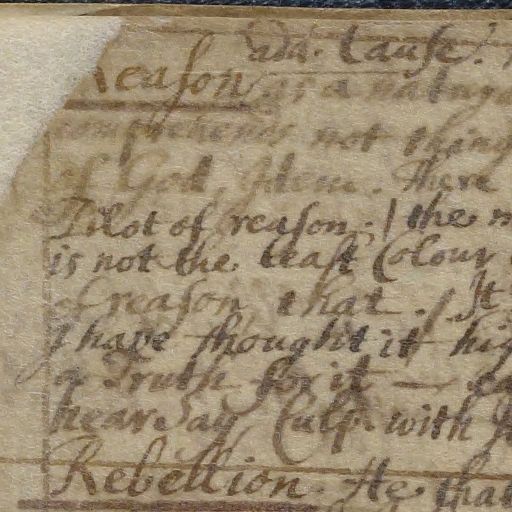 vid. Cause.
Reason is a natur
comprehends not thing
of God, Item. There
Pilot of reason. / the m
is not the least Colour
of reason, that . / It
I have thought it hig
a Truth for it —
hear Say Culp. with
Rebellion. He that